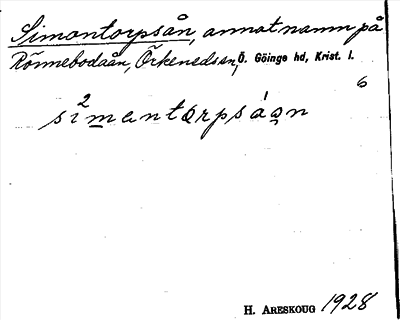 Simontorpsån, annat namn på
Rönnebodaån, Örkeneds sn, Ö. Göinge hd, Krist. l.
6
2
simantorpsáan
H. ARESKOUG 1928